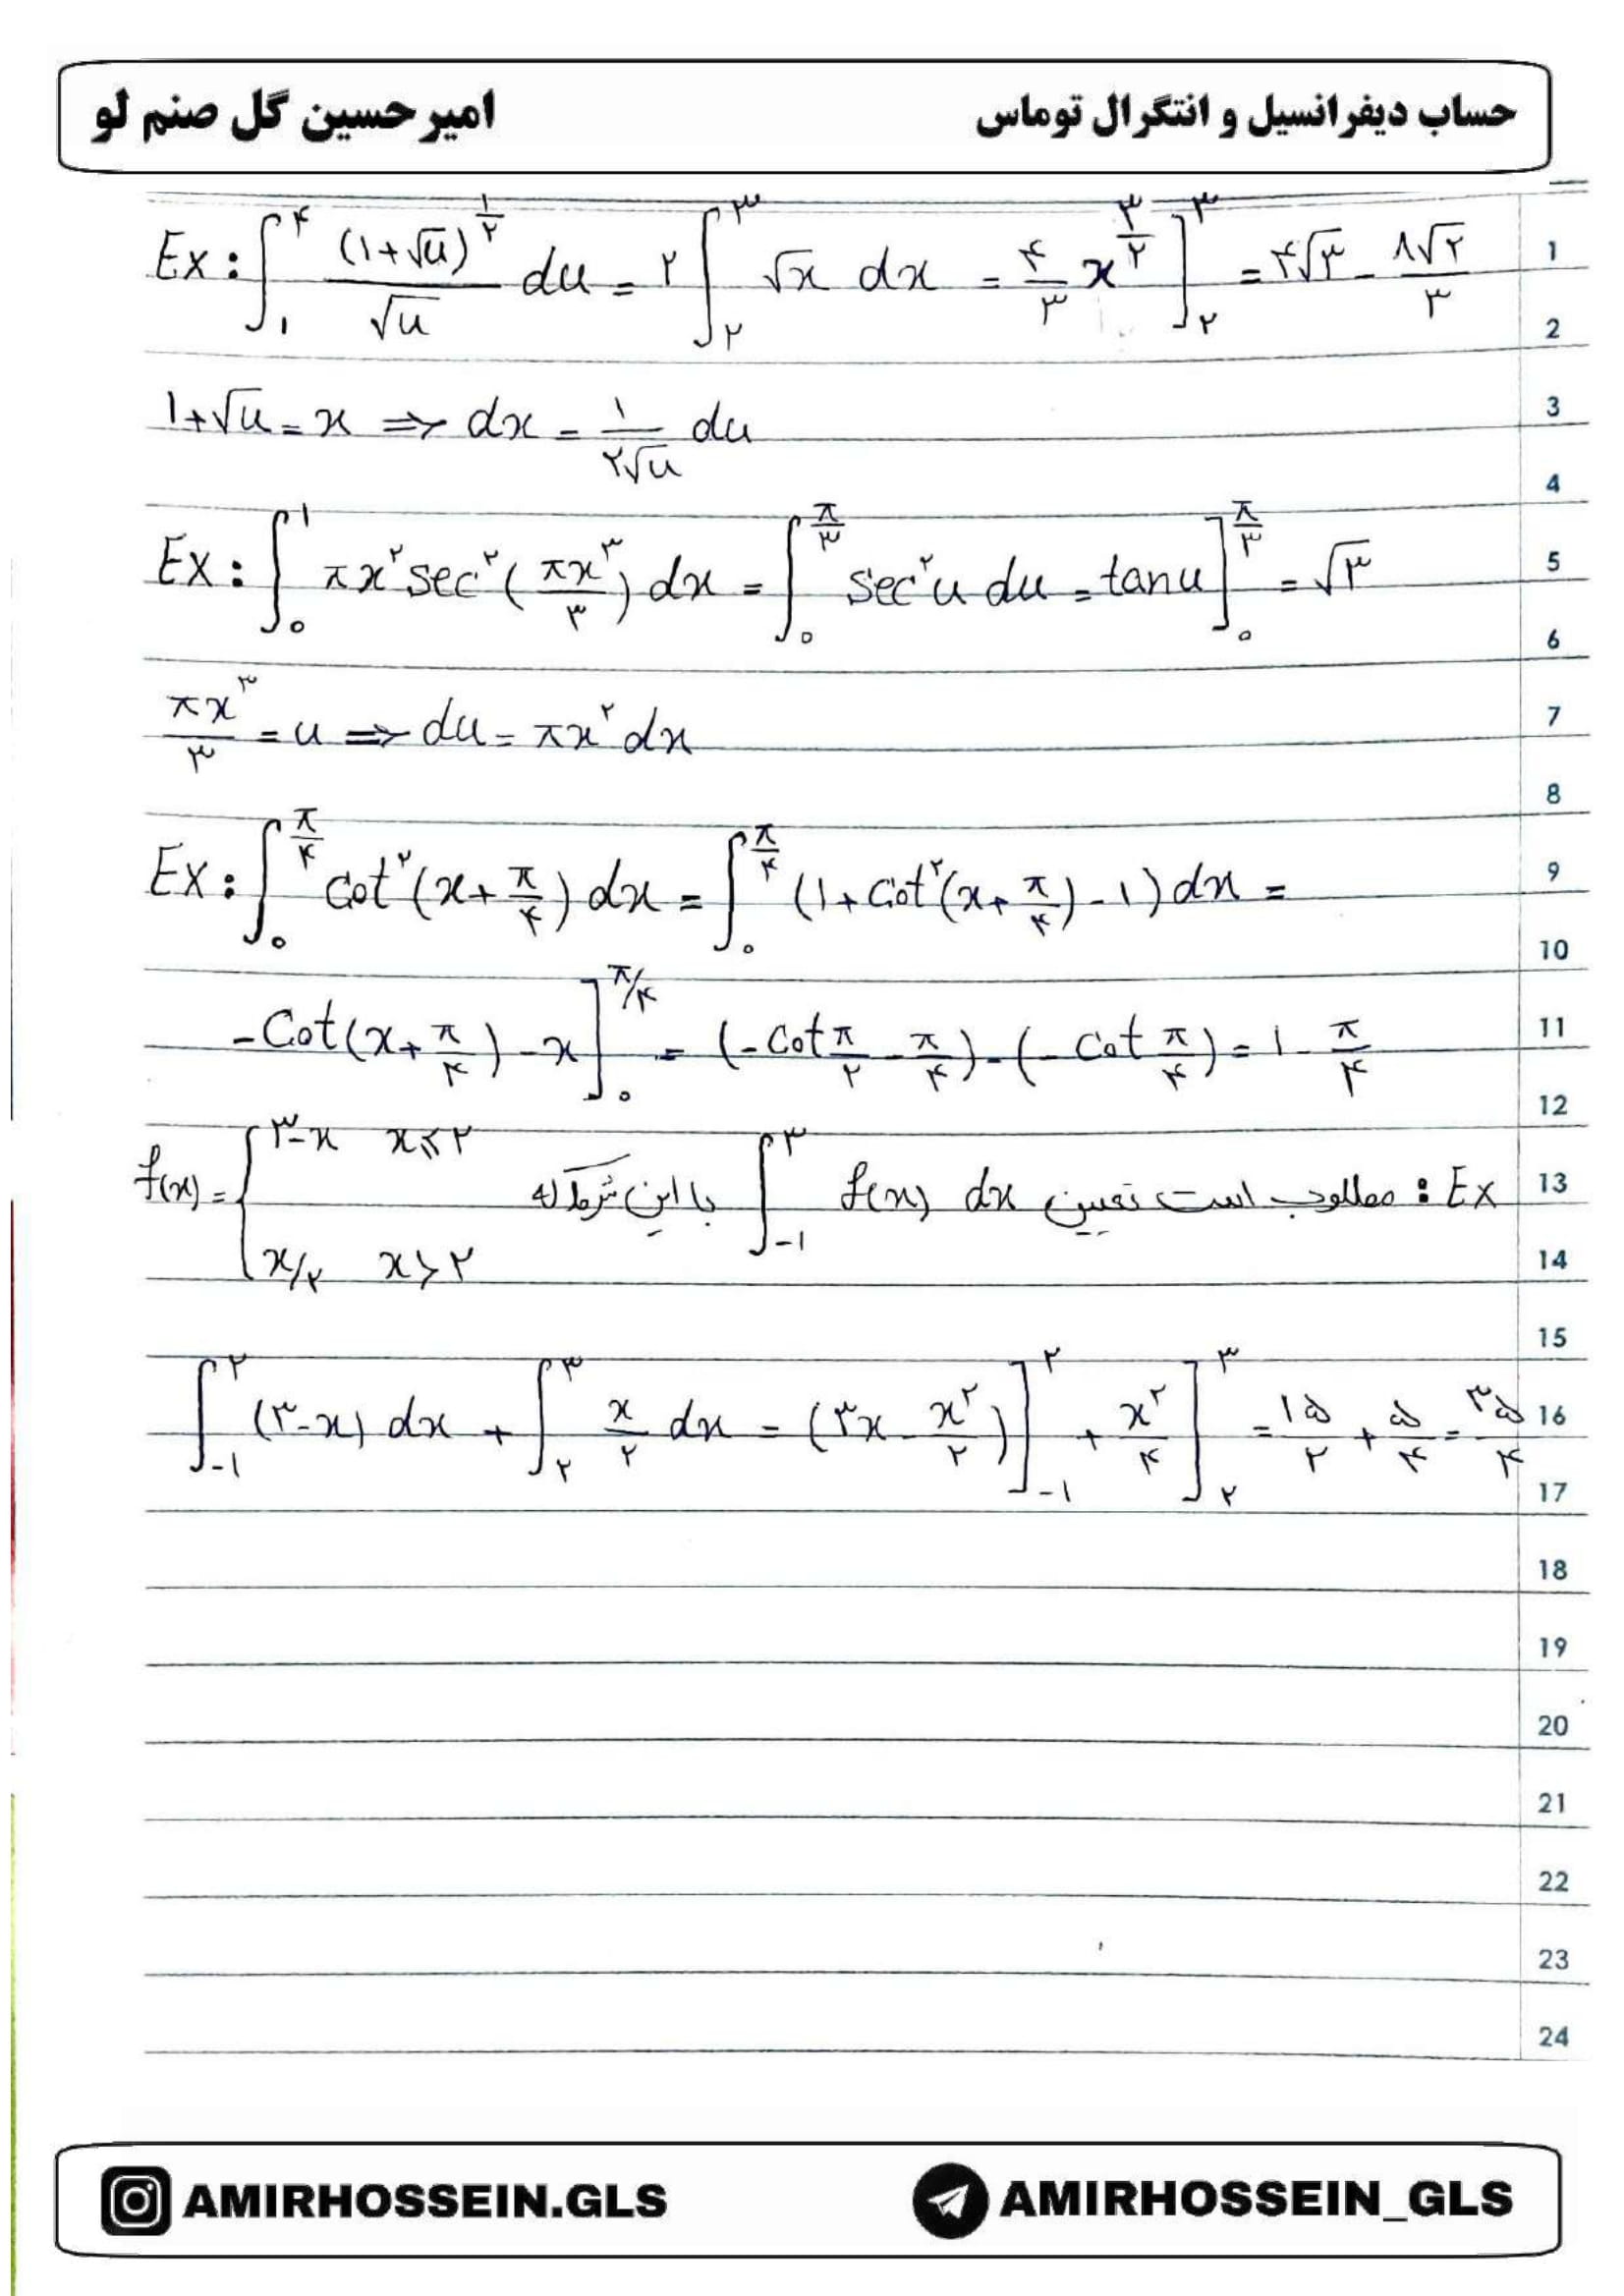 حساب دیفرانسیل و انتگرال توماس
امیرحسین گل صنم لو
Ex: ∫_۱^۴ (۱+√u)^(۱/۲) / √u du = ۲ ∫_۲^۳ √x dx = ۴/۳ x^(۳/۲) ]_۲^۳ = ۴√۳ - ۸√۲/۳
۱+√u = x ⇒ dx = ۱/(۲√u) du
Ex: ∫_۰^۱ πx^۲ sec^۲(πx^۳/۳) dx = ∫_۰^(π/۳) sec^۲u du = tanu ]_۰^(π/۳) = √۳
πx^۳/۳ = u ⇒ du = πx^۲ dx
Ex: ∫_۰^(π/۴) Cot^۲(x+π/۴) dx = ∫_۰^(π/۴) (۱+Cot^۲(x+π/۴)-۱) dx =
-Cot(x+π/۴) - x ]_۰^(π/۴) = (-Cot π/۲ - π/۴) - (-Cot π/۴) = ۱ - π/۴
Ex: مطلوب است تعیین ∫_-۱^۳ f(x) dx با این شرط که f(x) = { ۳-x x⩽۲
x/۲ x>۲
∫_-۱^۲ (۳-x) dx + ∫_۲^۳ x/۲ dx = (۳x - x^۲/۲) ]_-۱^۲ + x^۲/۴ ]_۲^۳ = ۱۵/۲ + ۵/۴ = ۳۵/۴
1
2
3
4
5
6
7
8
9
10
11
12
13
14
15
16
17
18
19
20
21
22
23
24
AMIRHOSSEIN.GLS
AMIRHOSSEIN_GLS